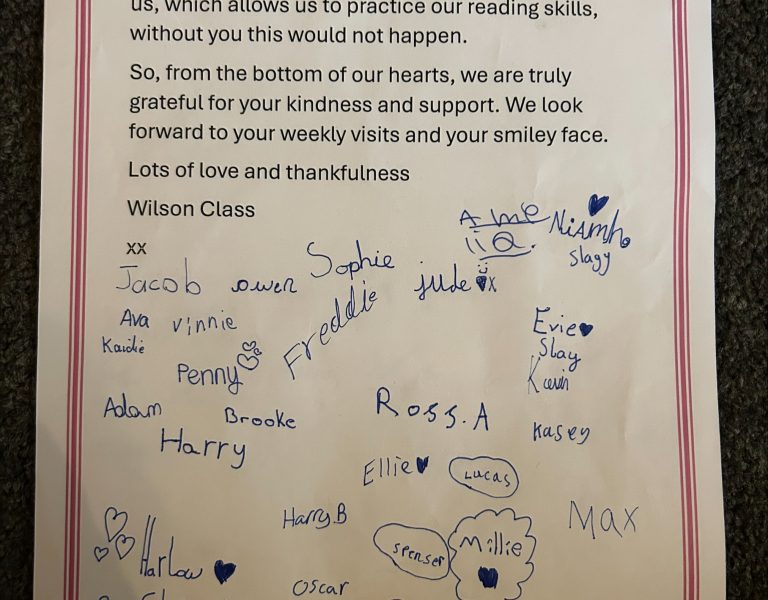 us, which allows us to practice our reading skills,
without you this would not happen.
So, from the bottom of our hearts, we are truly
grateful for your kindness and support. We look
forward to your weekly visits and your smiley face.
Lots of love and thankfulness
Wilson Class
xx
Ame
iia.
Niamh
Slagy
Jacob
owen
Sophie
jude x
Ava
vinnie
Freddie
Evie
Slay
Penny
Adam
Brooke
Ross.A
Kasey
Harry
Ellie
Lucas
Harry.B
Max
Harlow
Spenser
Millie
Oscar